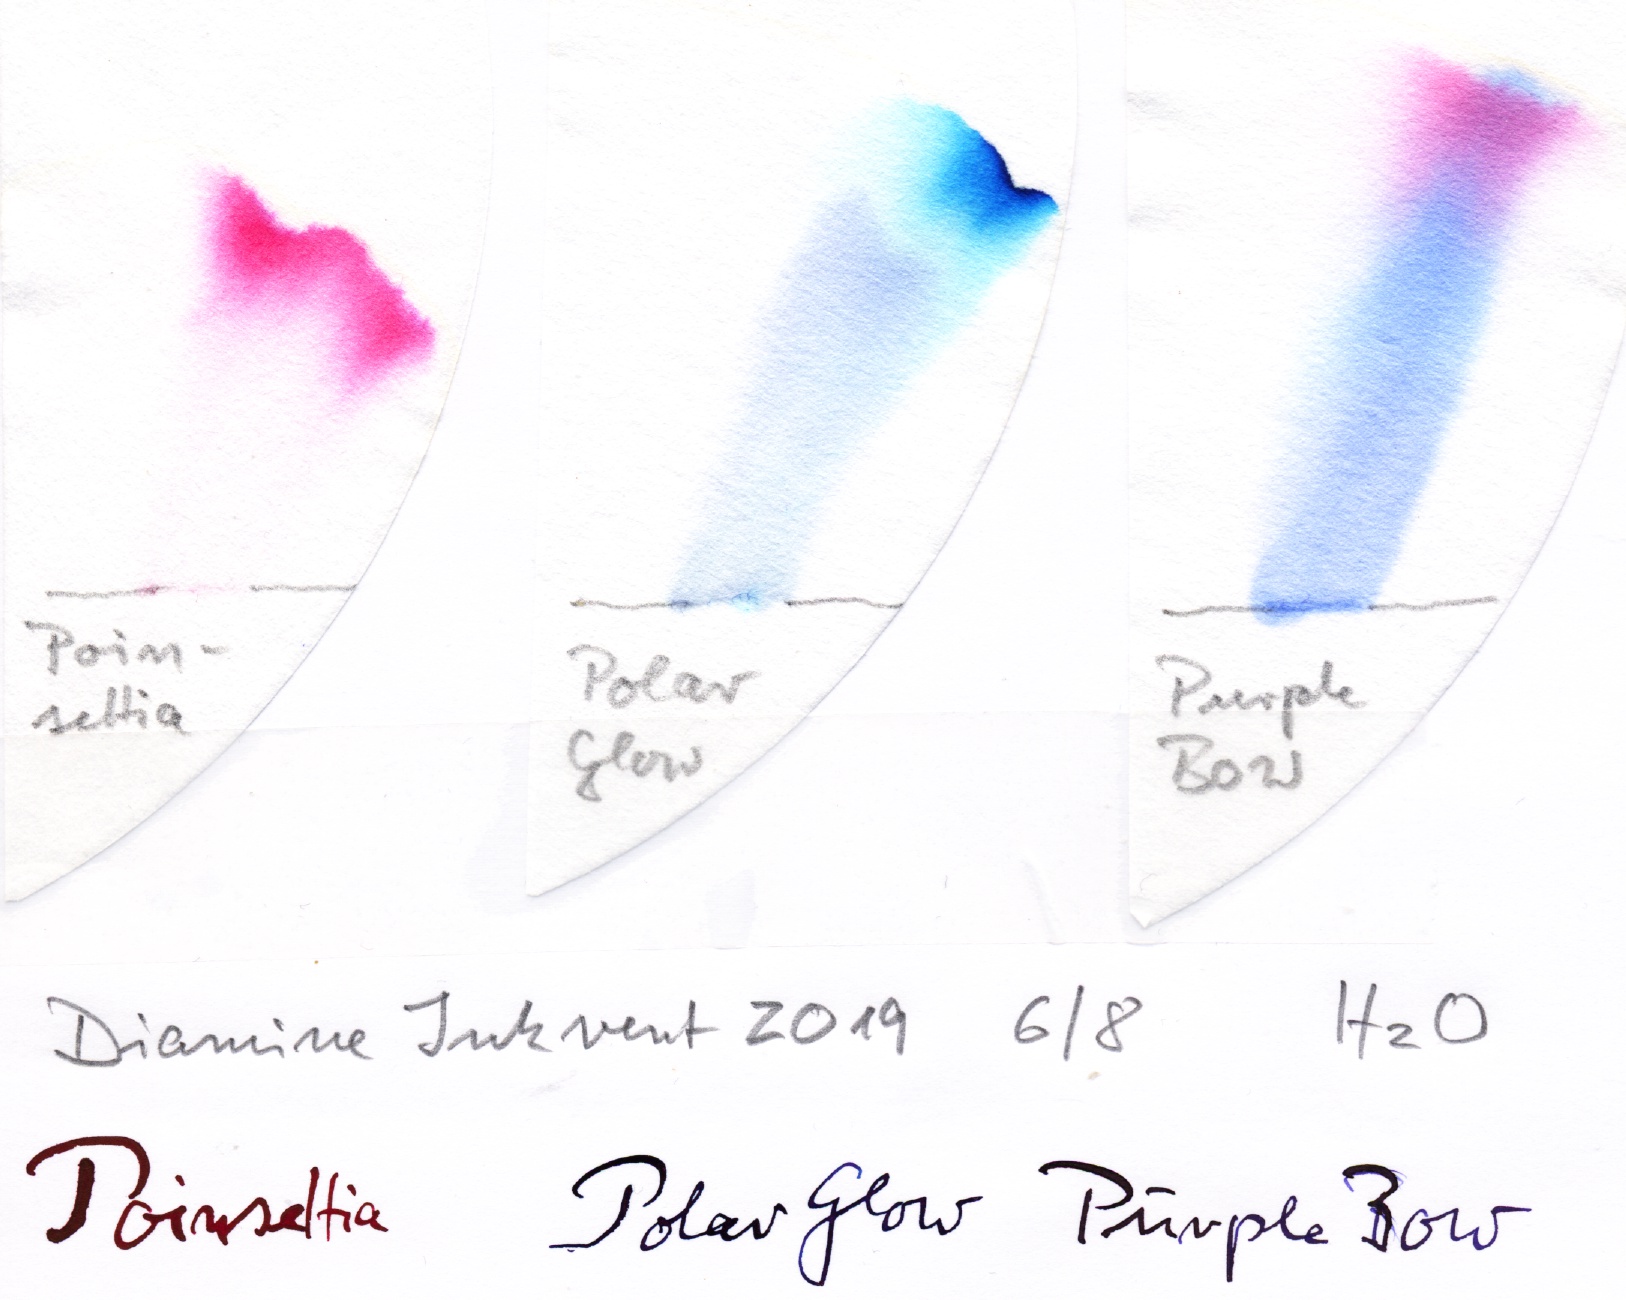 Poin-
settia
Polar
Glow
Purple
Bow
Diamine Inkvent 2019 6/8 H2O
Poinsettia Polar Glow Purple Bow